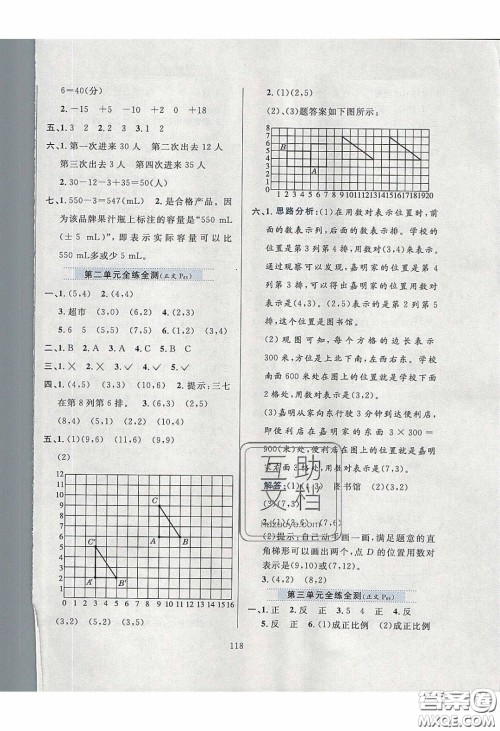 6=40(分)
2. -15 +5 -2 0 +18
五、1. 3 2. 2 3. 2 1 2
六、1. 第一次进来 30 人 第二次出去 12 人
第三次出去 3 人 第四次进来 35 人
2. 30-12-3+35=50(人)
七、1. 550-3=547(mL) 2. 是合格产品。因
为该品牌果汁瓶上标注的容量是“550 mL
(±5 mL)”,即表示实际容量可以比 550
mL多或少 5 mL。
第二单元全练全测(正文 P₆₇)
一、1. (5,4) 2. (4,4)
3. 超市 (3,0) (6,2) 4. (3,5)
5. 6 5 5 2 (9,2) (6,5)
二、1. B 2. A 3. C 4. B
三、1. ✓ 2. × 3. × 4. ×
四、1. (4,5) (3,6) (6,3) 2. 提示:三七
在第 8 列第 6 排。 (6,3) (2,5)
(8,4) (5,1) (8,2)
五、1. (1)(9,6) (9,9) (11,6)
(2)
12
11
10
9
8
7
6
5
4
3
2
1
C
A
B
C′
A′
B′
0 1 2 3 4 5 6 7 8 9 10 11 12 13 14 15 16
(3,2) (3,5) (5,2)
2. (1)(2,5)
(2)、(3)题答案如下图所示:
8
7
6
5
4
3
2
1
0
B
A
1 2 3 4 5 6 7 8 9 10 11 12 13 14 15 16 17 18 19 20
六、思路分析:(1)在用数对表示位置时,前
面的数表示列,后面的数表示排。学校的
位置是第 3 列第 4 排,用数对表示是(3,4)。
通过观察可以发现,嘉明家的位置是第 7
列第 3 排,用数对表示是(7,3)。第 2 列第 5
排,这个位置是图书馆。
(2)观图可知,每个方格的边长表示
300 米,方位是上北下南,左西右东。学校
南面 600 米处在图上的位置就是正南
2 格处,用数对表示是(3,2)。
(3)嘉明从家向东行驶 3 分钟到达便利店,
即便利店在嘉明家的正东 3×300=
900(米)处,便利店在图上的位置就是正
东 3 格处,用数对表示是
解答:(1)(7,3) 图书馆 (2)(3,2)
2. (1)(3,6) (7,6)
(2)提示:自己动手画一画,满足题意的直
角梯形可以画出两个,点 D 的位置用数对
表示是(9,10)或(7,3)。
3. (4,2) (8,2)
第三单元全练全测(正文 P₆₉)
一、1. 正 2. 反 正 3. 5 4 4. 正 反
5. 反 正 6. (1)成正比例 (2)成反比例
118
互助
文档
答案圈
MXQE.COM